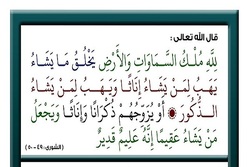 قال الله تعالى :
لِلَّهِ مُلْكُ السَّمَاوَاتِ وَالْأَرْضِ يَخْلُقُ مَا يَشَاءُ
يَهَبُ لِمَنْ يَشَاءُ إِنَاثًا وَيَهَبُ لِمَنْ يَشَاءُ
الذُّكُورَ ۝ أَوْ يُزَوِّجُهُمْ ذُكْرَانًا وَإِنَاثًا وَيَجْعَلُ
مَنْ يَشَاءُ عَقِيمًا إِنَّهُ عَلِيمٌ قَدِيرٌ
(الشورى: ٤٩ - ٥٠)